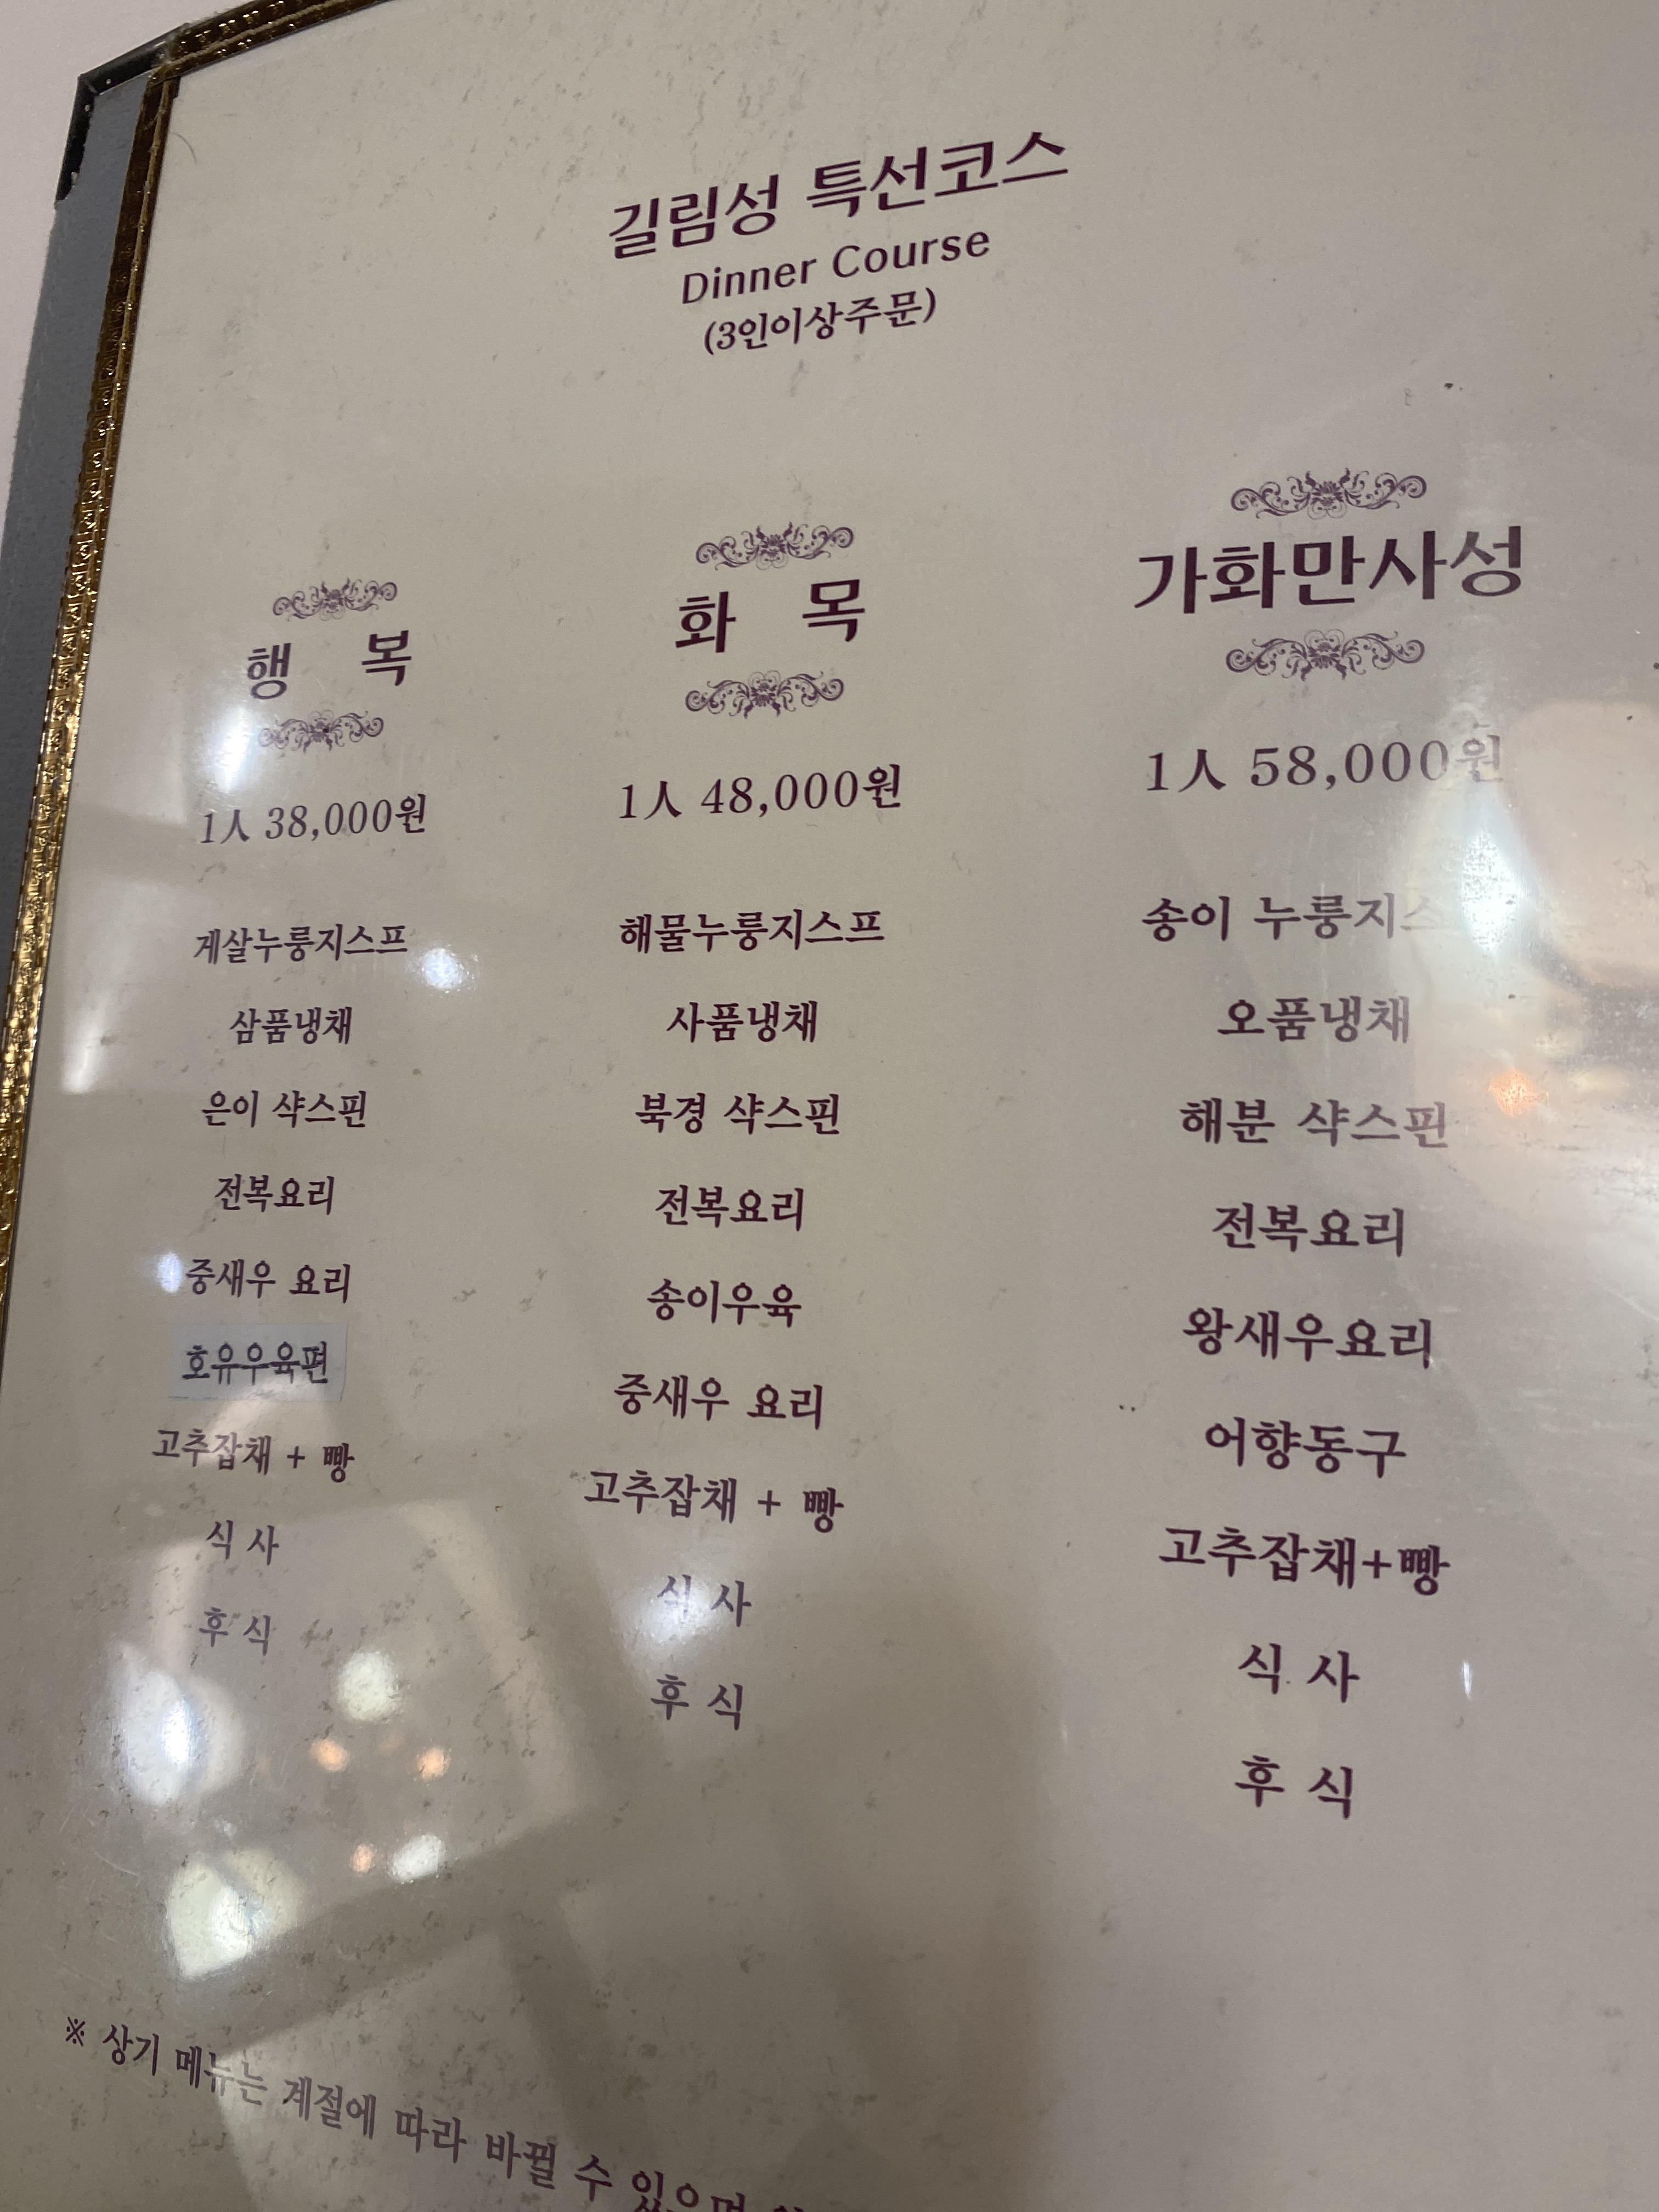 길림성 특선코스
Dinner Course
(3인이상주문)
행 복
1人 38,000원
게살누룽지스프
삼품냉채
은이 샥스핀
전복요리
중새우 요리
호유우육편
고추잡채 + 빵
식 사
후 식
화 목
1人 48,000원
해물누룽지스프
사품냉채
북경 샥스핀
전복요리
송이우육
중새우 요리
고추잡채 + 빵
식 사
후 식
가화만사성
1人 58,000원
송이
오품냉채
해분 샥스핀
전복요리
왕새우요리
어향동구
고추잡채+빵
식 사
후 식
※ 상기 메뉴는 계절에 따라 바뀔 수 있으며